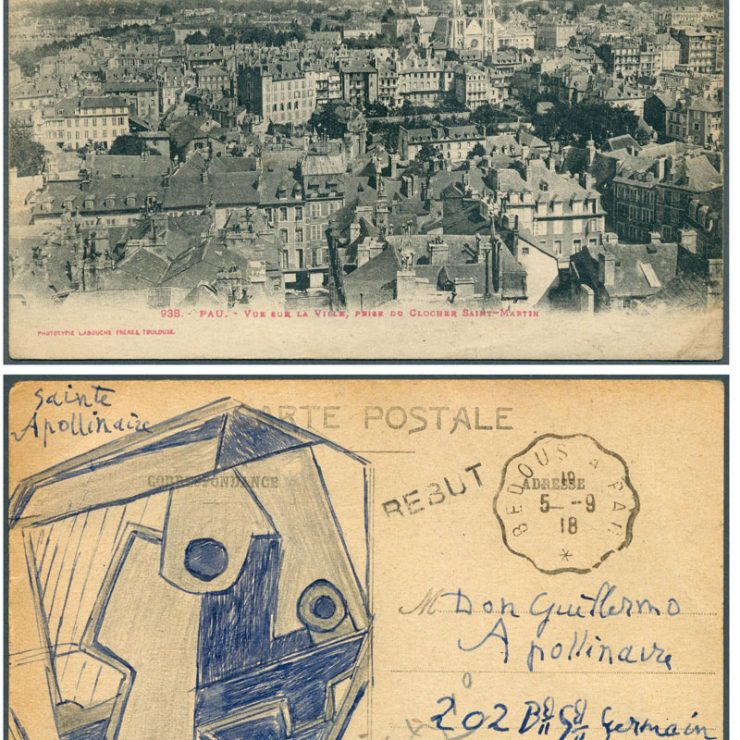 938. - PAU. - VUE SUR LA VILLE, PRISE DU CLOCHER SAINT-MARTIN
PHOTOTYPIE LABOUCHE FRÈRES, TOULOUSE.
Sainte
Apollinaire
CARTE POSTALE
CORRESPONDANCE
REBUT
BEDOUS A PAU
19
ADRESSE
5 - -9
18
*
M Don Guillermo
Apollinaire
202 Bd St Germain